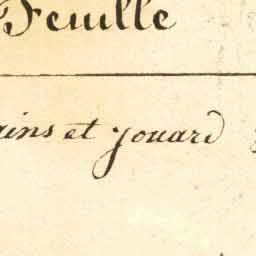 Feuille
ains et Jouard